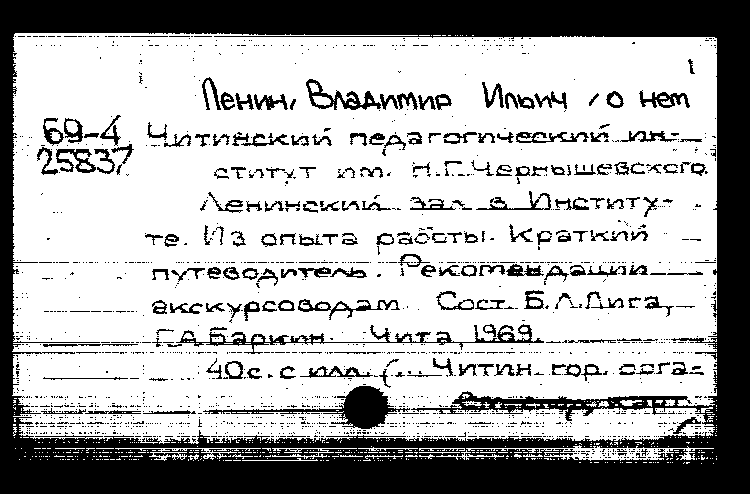 1
Ленин, Владимир Ильич / о нем
69-4 Читинский педагогический ин-
25837 ститут им. Н.Г.Чернышевского
Ленинский зал в Институ-
те. Из опыта работы. Краткий
путеводитель. Рекомендации
экскурсоводам. Сост. Б.Л.Лига,
Г.А.Баркин. Чита, 1969.
40с. с илл. (... Читин. гор. орга-
см. след. карт.